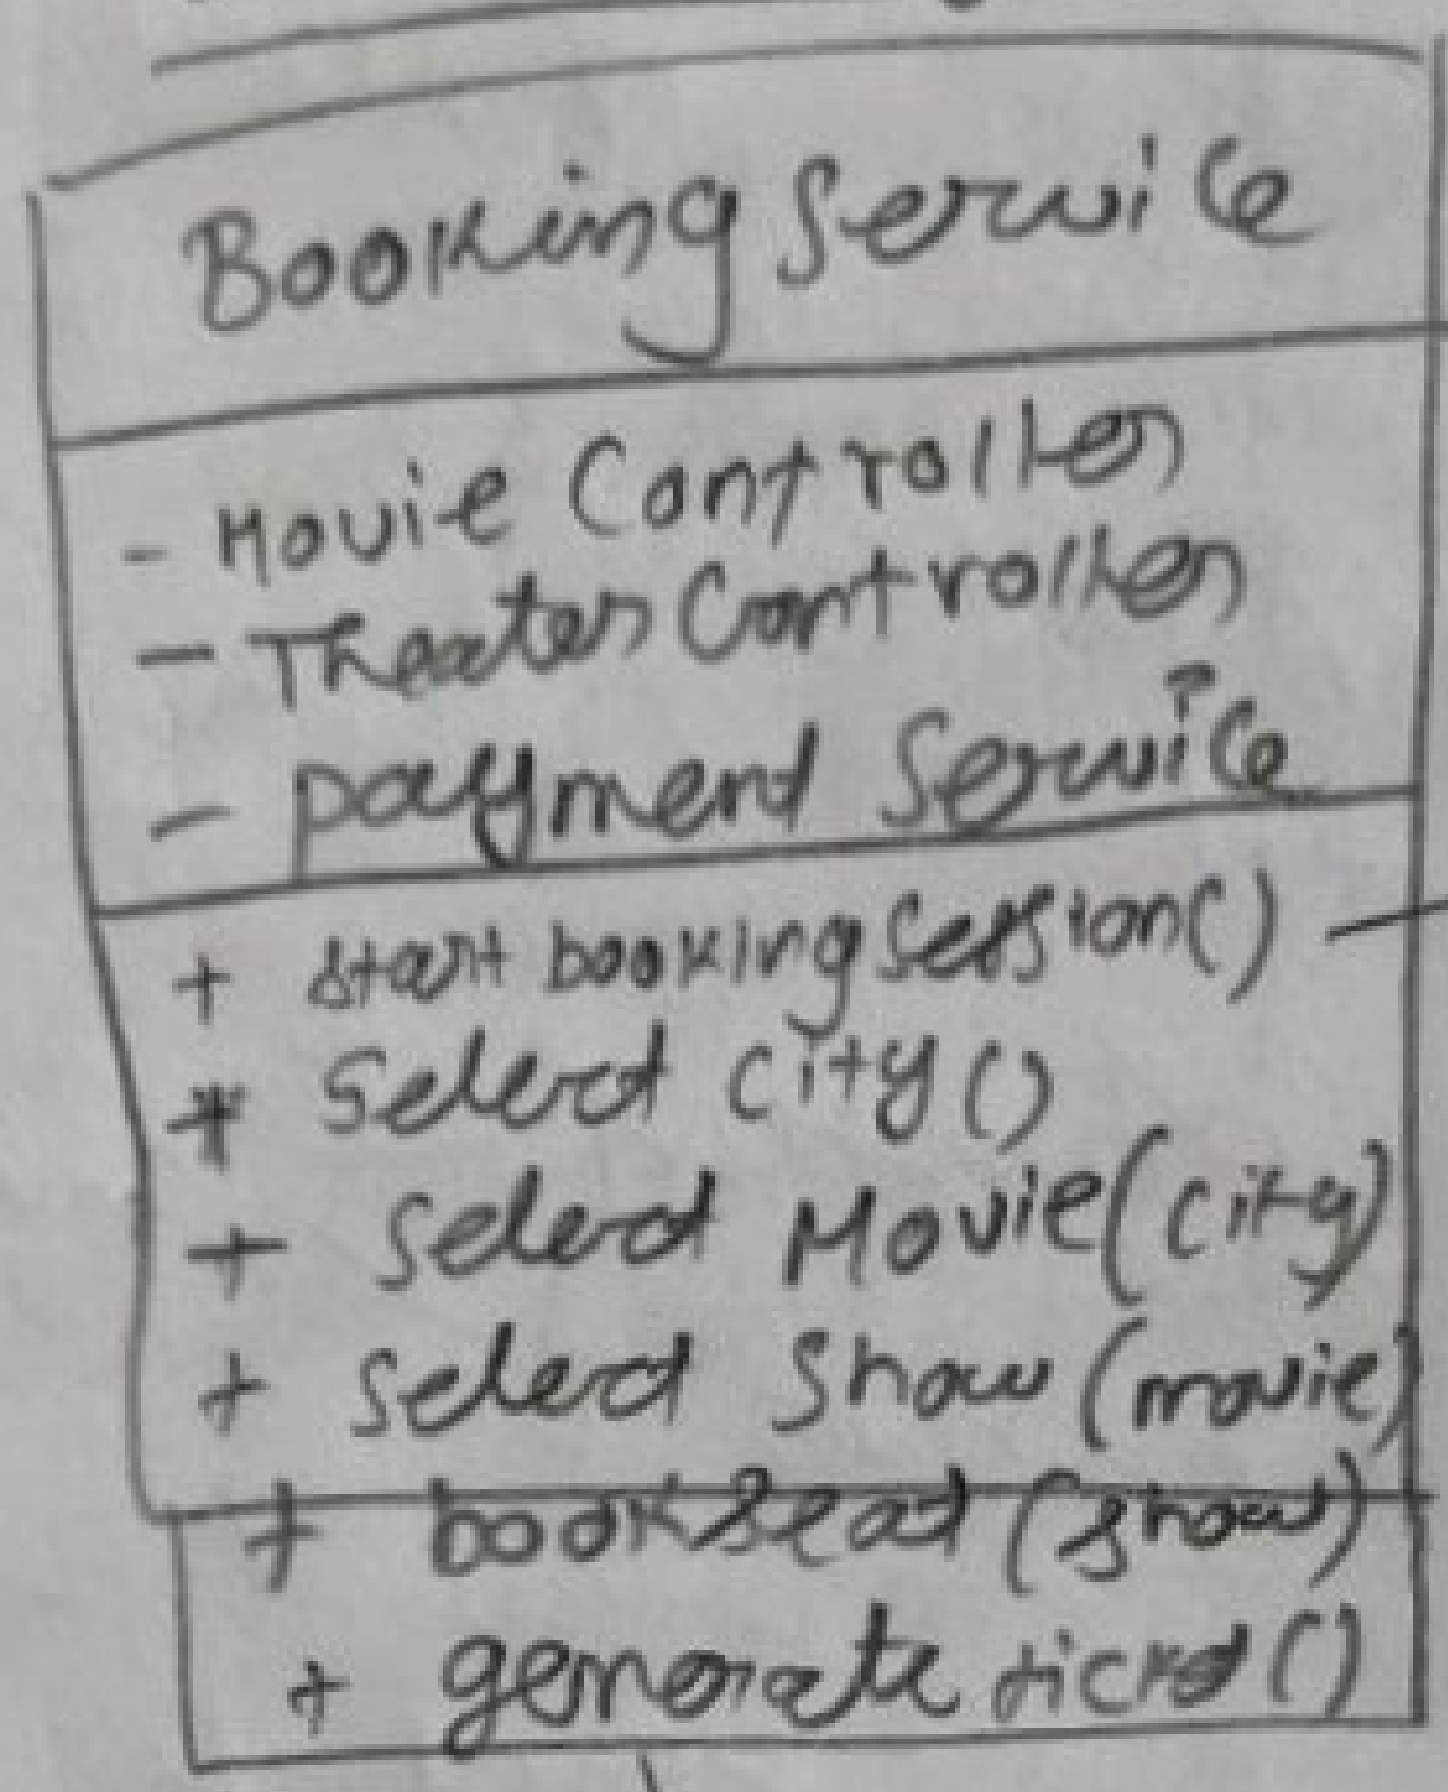 Booking Service
- Movie Controller
- Theater Controller
- payment Service
+ start booking Session()
+ Select city()
+ Select Movie(city)
+ Select Show (movie)
+ bookseat (show)
+ generate ticket()